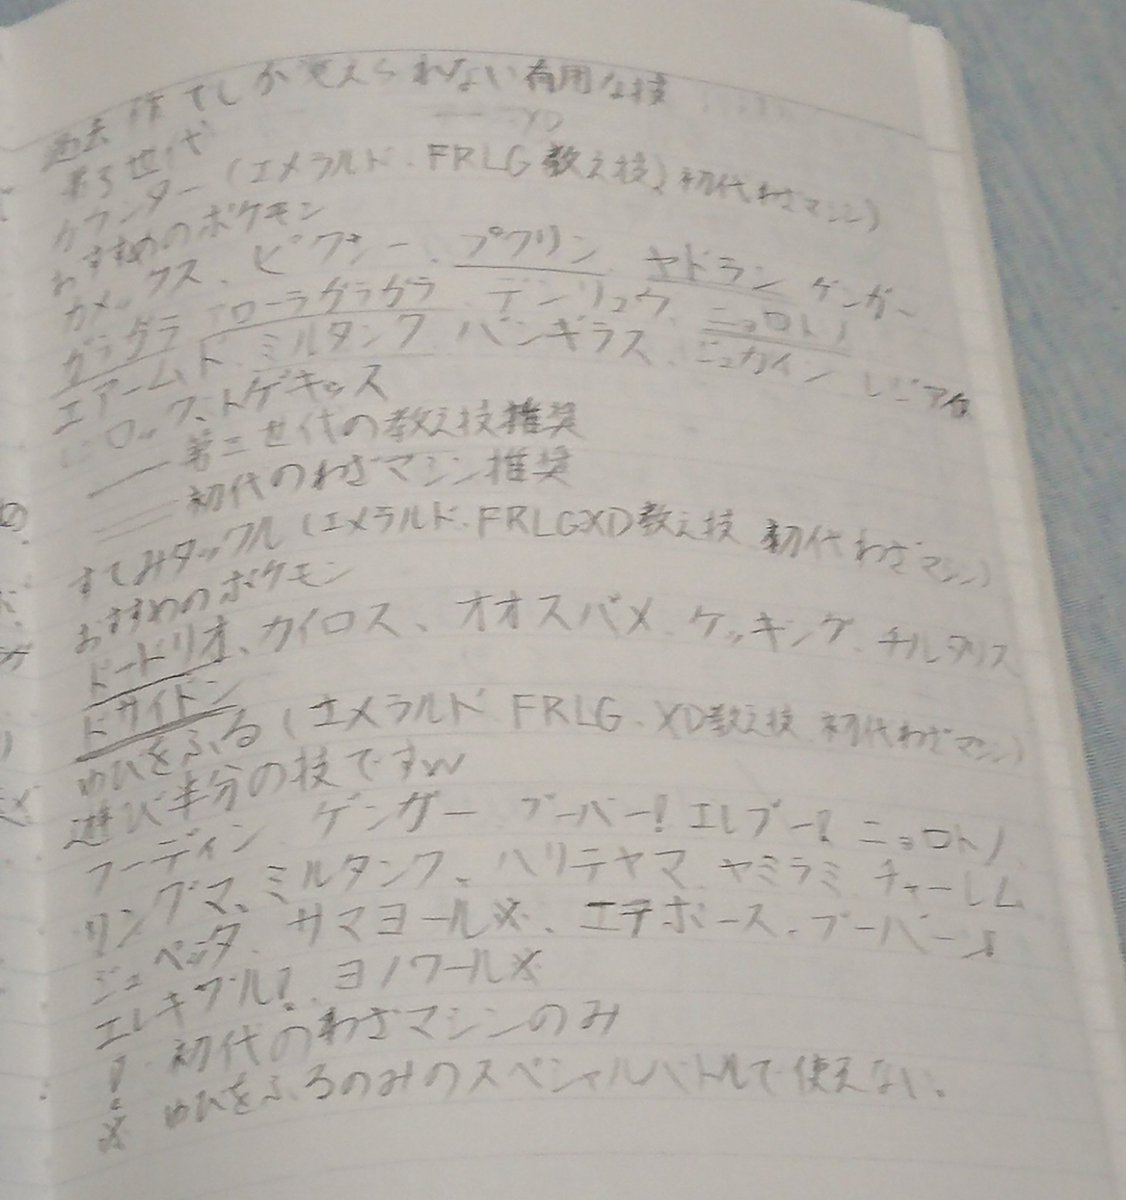 過去作でしか覚えられない有用な技
XD
第3世代
カウンター(エメラルド、FRLG教え技)初代わざマシン)
おすすめのポケモン
カメックス、ピクシー、プクリン、ヤドラン ゲンガー
ガラガラ アローラガラガラ、デンリュウ、ニョロトノ
エアームド、ミルタンク、バンギラス、ジュカイン レジアイ
ロック、トゲキッス
第三世代の教え技推奨
初代のわざマシン推奨
すてみタックル(エメラルド、FRLGXD教え技 初代わざマシン)
おすすめのポケモン
ドードリオ、カイロス、オオスバメ、ケッキング、チルタリス
ドサイドン
ゆびをふる(エメラルド FRLG、XD教え技 初代わざマシン)
遊び半分の技ですw
フーディン、ゲンガー ブーバー! エレブー! ニョロトノ、
リングマ、ミルタンク、ハリテヤマ、ヤミラミ、チャーレム
ジュペッタ、サマヨール※、エテボース、ブーバーン!
エレキブル!、ヨノワール※
! 初代のわざマシンのみ
※ ゆびをふるのみのスペシャルバトルで使えない。